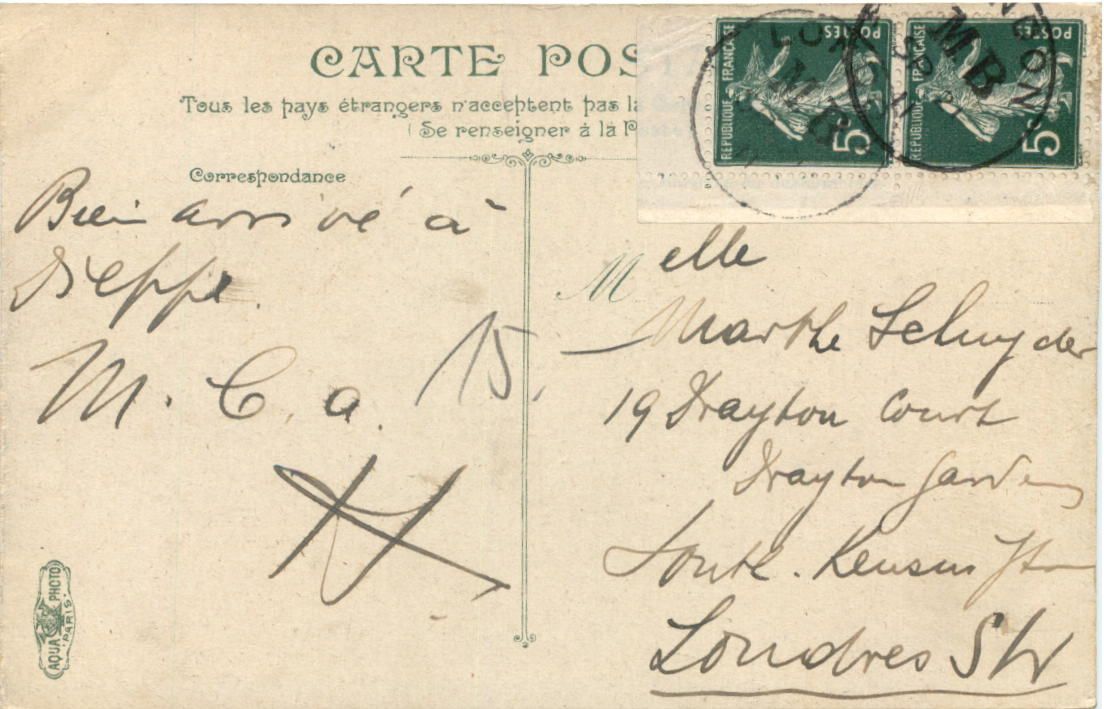 CARTE POSTA
Tous les pays étrangers n'acceptent pas la
(Se renseigner à la Poste
Correspondance
REPUBLIQUE FRANÇAISE
POSTES
5
REPUBLIQUE FRANÇAISE
POSTES
5
LONDON
M.B
LONDON
M.B
Bien arrivé à
Dieppe.
M. C. a. 15.
M elle
Marthe Schnyder
19 Drayton Court
Drayton Gardens
South. Kensington
Londres SW
AQUA PHOTO
PARIS